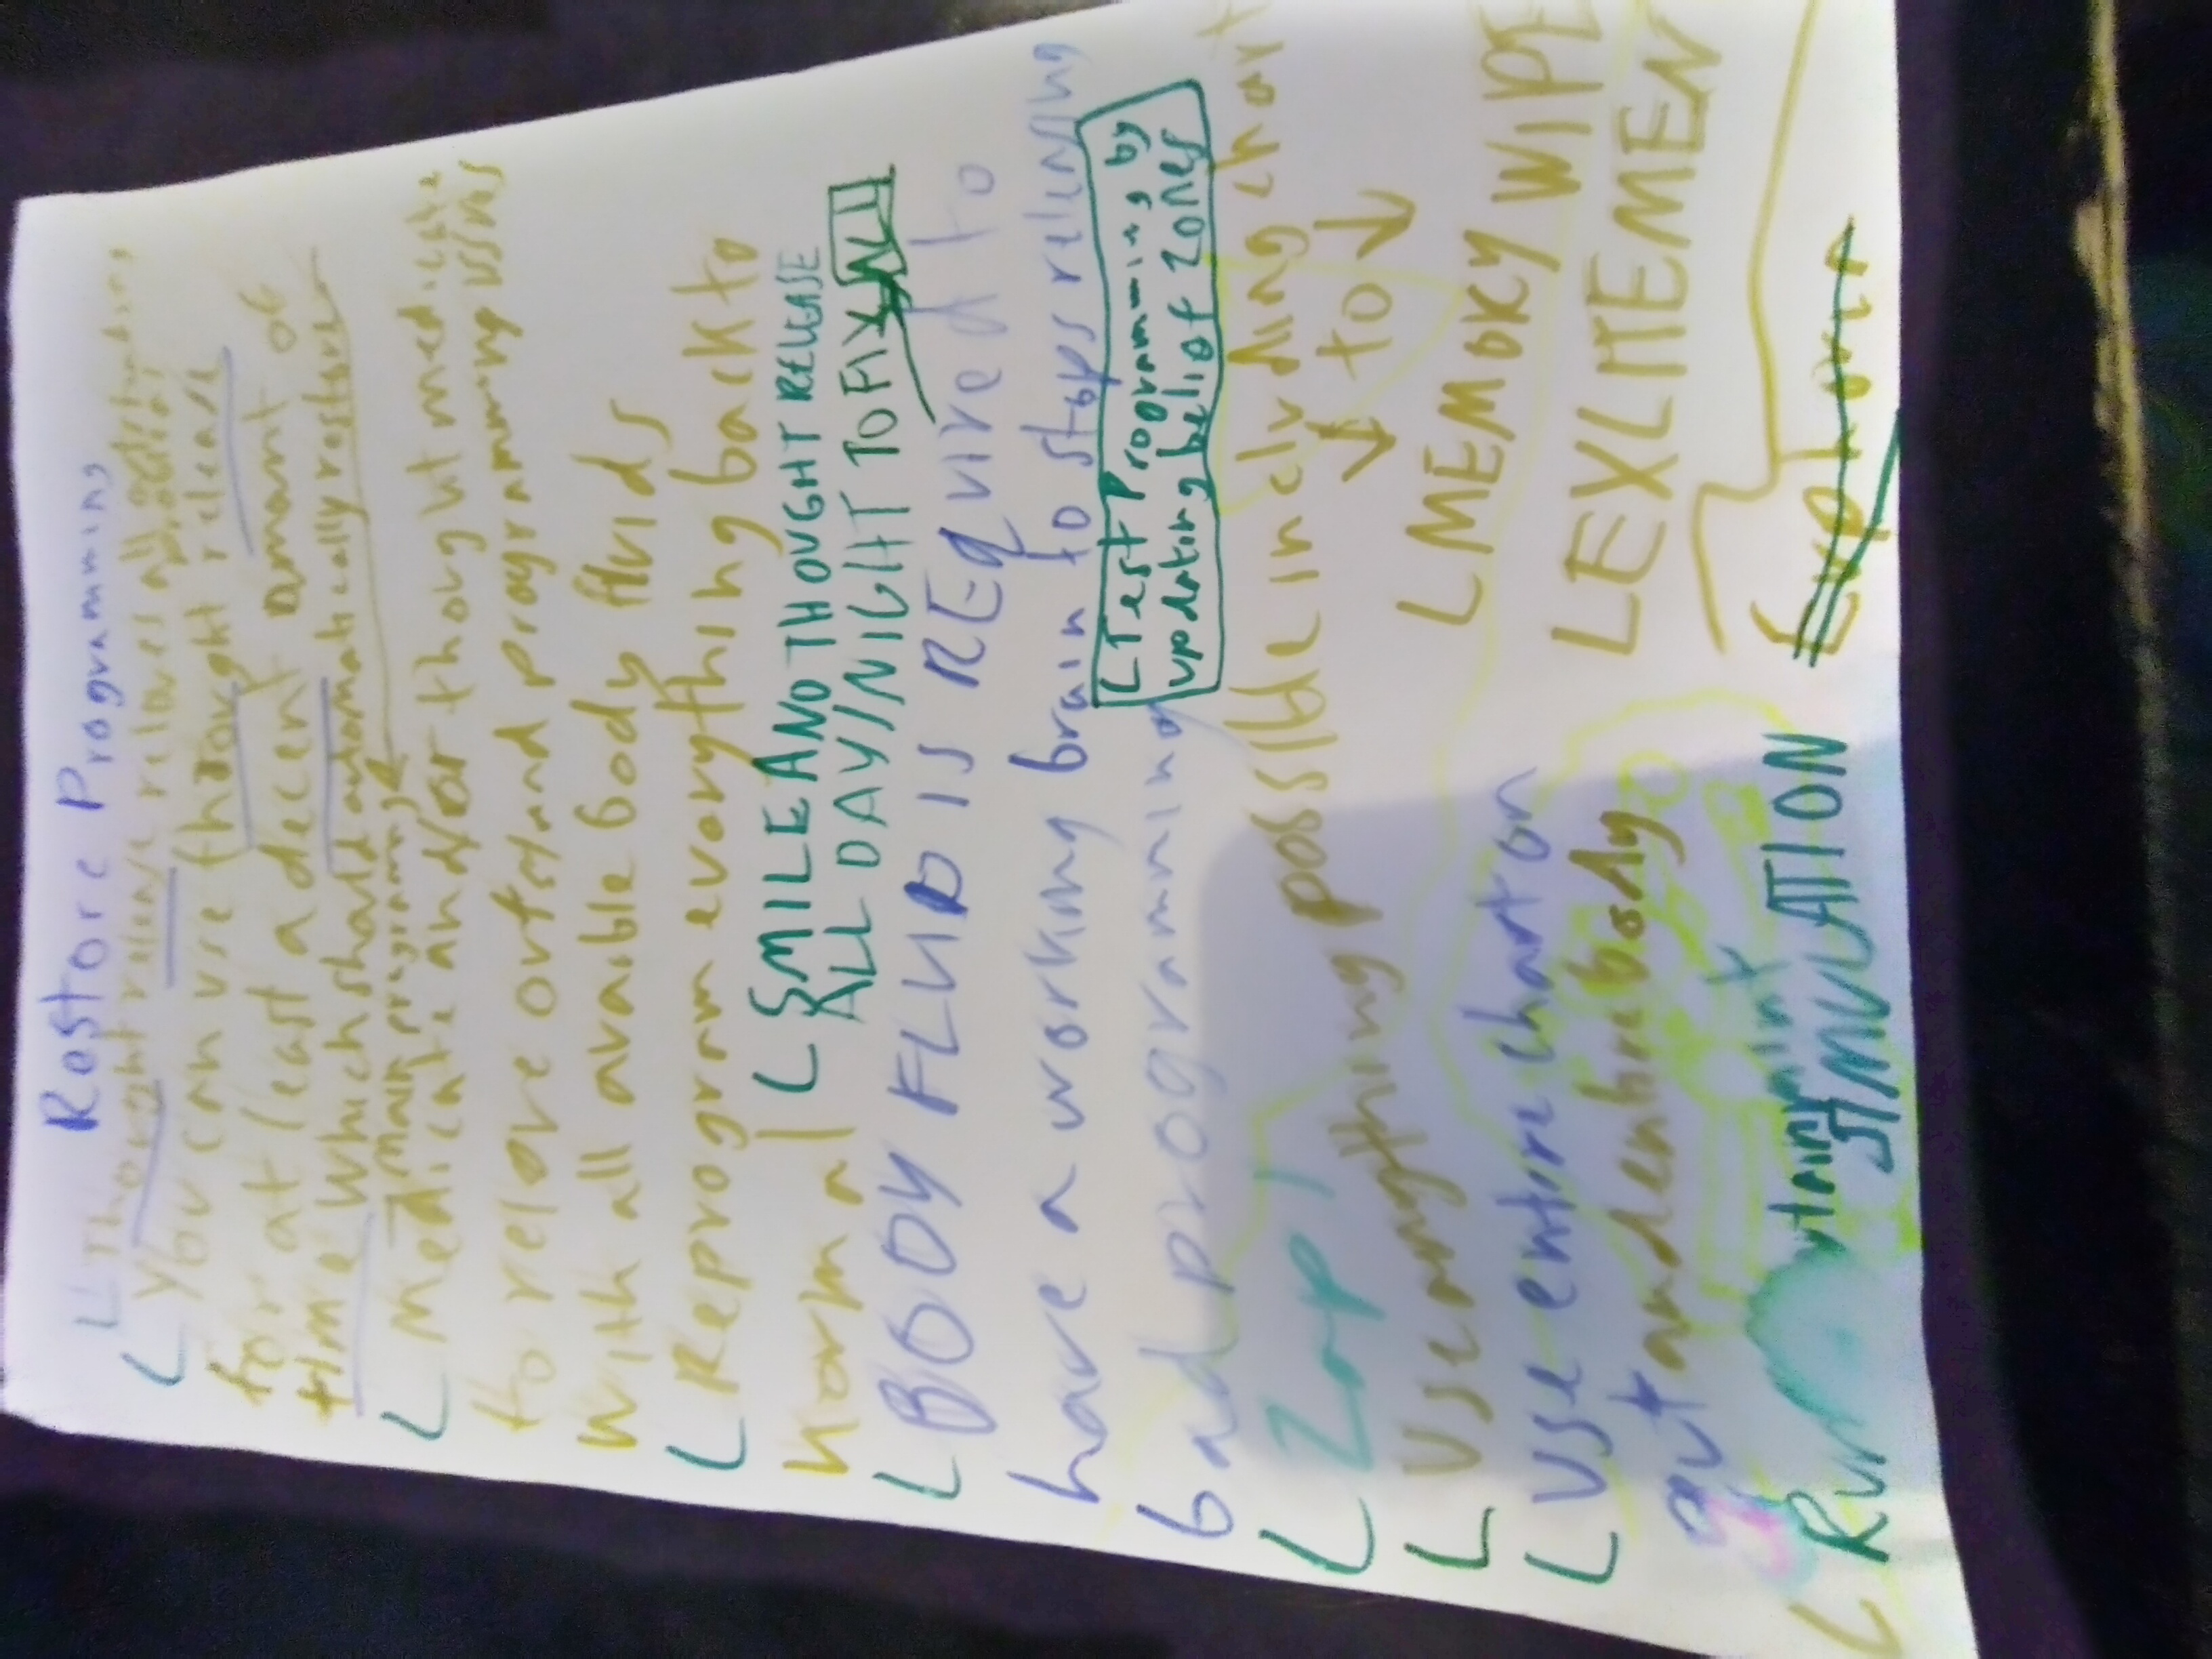 Restore Programming
L Thought release relaxes all
L You can use thought release
for at least a decent amount of
time which should automatically restore
main programs
L Medicate and/or thought medicate
to relaxe out and programming
with all avaible body fluids
L Reprogram everything back to
normal
L SMILE AND THOUGHT RELEASE
ALL DAY/NIGHT TO FIX ALL
L BODY FLUID IS REQuired to
have a working brain to stops relying
bad programming
L Test Programming by
updating belief zones
L Zap!
L Use anything possible including chart
to
L MEMORY WIPE
L EXLITEMEN
L Use entire chart on
and entire body
Euphoria
L Run
SIMULATION